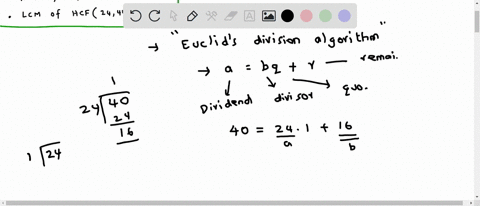 . LCM of HCF(24,4
"Euclid's division algorithm"
→ a = bq + r — remai.
Dividend divisor quo.
1
24 40
24
16
40 = 24 . 1 + 16
a b
1 24